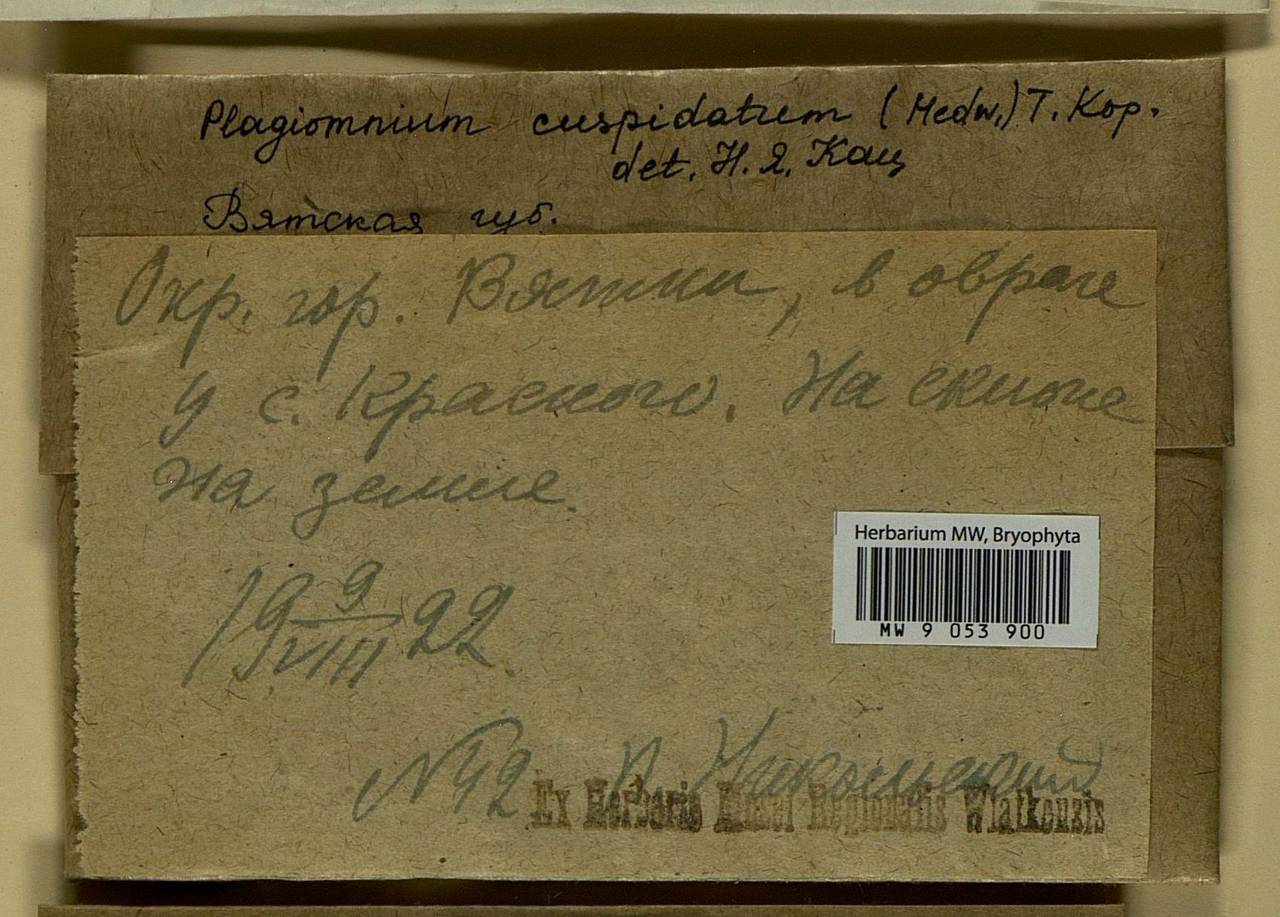 Plagiomnium cuspidatum (Hedw.) T. Kop.
det. Н. Я. Кац
Вятская губ.
Окр. гор. Вятки, в овраге
у с. Красного. На склоне
на земле.
19 9/VIII 22.
Herbarium MW, Bryophyta
MW 9 053 900
№ 42 Никольский
Ex Herbario Musei Regionalis Wiatkensis